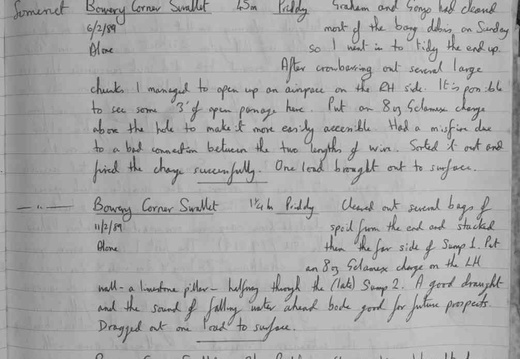 Somerset Bowery Corner Swallet 45m Priddy Graham and Gonzo had cleared
6/2/89 most of the bang debris on Sunday
Alone so I went in to tidy the end up.
After crowbarring out several large
chunks I managed to open up an airspace on the RH side. It is possible
to see some 3' of open passage here. Put an 8oz Gelamex charge
above the hole to make it more easily accessible. Had a misfire due
to a bad connection between the two lengths of wire. Sorted it out and
fired the charge successfully. One load brought out to surface.
— " — Bowery Corner Swallet 1¼h Priddy Cleared out several bags of
11/2/89 spoil from the end and stacked
Alone them the far side of Sump 1. Put
an 8oz Gelamex charge on the LH
wall - a limestone pillar - halfway through the (late) Sump 2. A good draught
and the sound of falling water ahead bode good for future prospects.
Dragged out one load to surface.